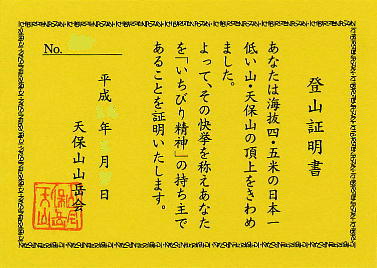 登山証明書
あなたは海抜四・五米の日本一
低い山・天保山の頂上をきわめ
ました。
よって、その快挙を称えあなた
を「いちびり精神」の持ち主で
あることを証明いたします。
平成 年 月 日
天保山山岳会
No.